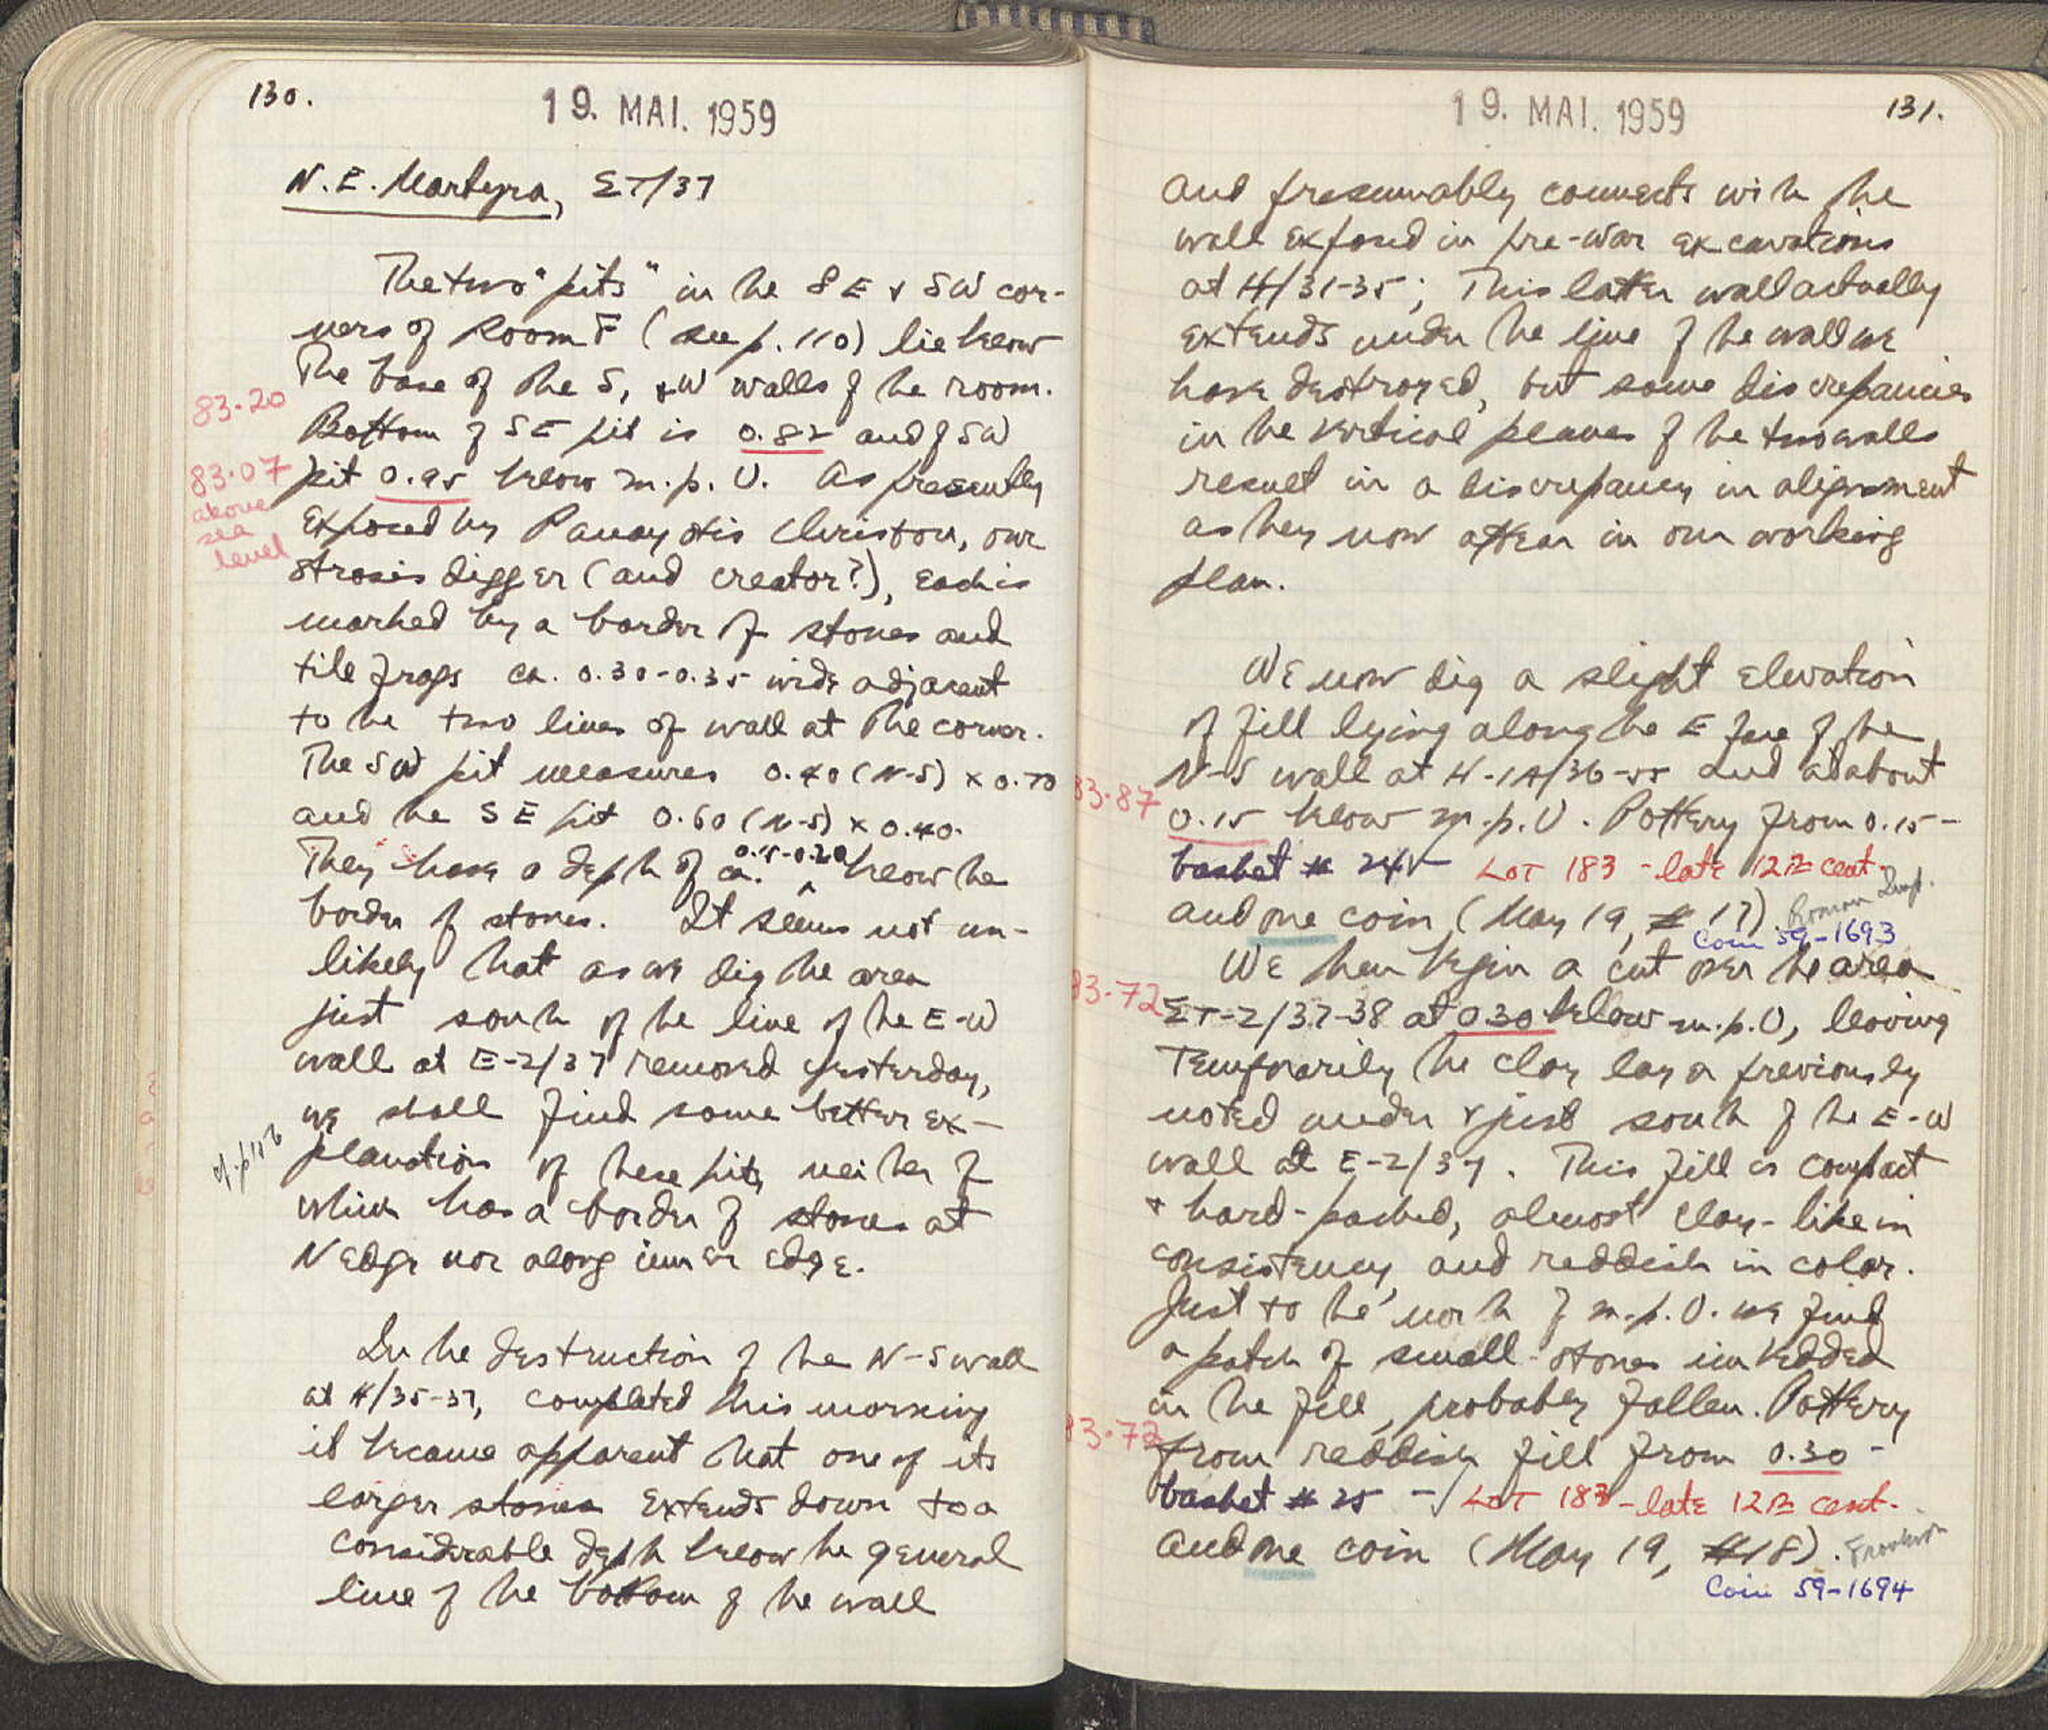 130.
19. MAI. 1959
N.E. Martyra, ΣΤ/37
The two "pits" in the SE & SW cor-
ners of Room F (see p. 110) lie below
the base of the S, & W walls of the room.
83.20
Bottom of SE pit is 0.82 and of SW
83.07
above
sea
level
pit 0.95 below m.p. U. As presently
exposed by Panayotis Christou, our
strosis digger (and creator?), each is
marked by a border of stones and
tile frags ca. 0.30-0.35 wide adjacent
to the two lines of wall at the corner.
The SW pit measures 0.40 (N-S) x 0.70
and the SE pit 0.60 (N-S) x 0.40.
They have a depth of ca. 0.15-0.20 below the
border of stones. It seems not un-
likely that as we dig the area
just south of the line of the E-W
wall at E-Z/37 removed yesterday,
we shall find some better ex-
cf. p.
planation of these pits, neither of
which has a border of stones at
N edge nor along inner edge.
In the destruction of the N-S wall
at H/35-37, completed this morning
it became apparent that one of its
larger stones extends down to a
considerable depth below the general
line of the bottom of the wall
19. MAI. 1959
131.
and presumably connects with the
wall exposed in pre-war excavations
at H/31-35; This latter wall actually
extends under the line of the wall we
have destroyed, but some discrepancies
in the vertical planes of the two walls
result in a discrepancy in alignment
as they now appear in our working
plan.
We now dig a slight elevation
of fill lying along the E face of the
N-S wall at H-ΙΑ/36-55 and at about
83.87
0.15 below m.p. U. Pottery from 0.15-
basket # 24 - LOT 183 - late 12th cent.
and one coin (May 19, # 17). Roman Imp.
Coin 59-1693
We then begin a cut over the area
83.72
ΣΤ-Z/37-38 at 0.30 below m.p. U, leaving
temporarily the clay layer previously
noted under & just south of the E-W
wall at E-Z/37. This fill is compact
& hard-packed, almost clay-like in
consistency, and reddish in color.
Just to the north of m.p. U. we find
a patch of small stones imbedded
in the fill, probably fallen. Pottery
83.72
from reddish fill from 0.30 -
basket # 25 - LOT 183 - late 12th cent.
and one coin (May 19, #18).
Coin 59-1694